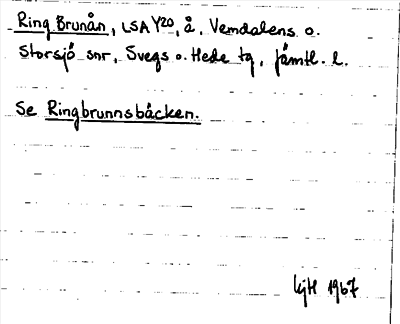 Ring Brunån, LSA Y20, å, Vemdalens o.
Storsjö snr, Svegs o. Hede tg, Jämtl. l.
Se Ringbrunnsbäcken.
1967